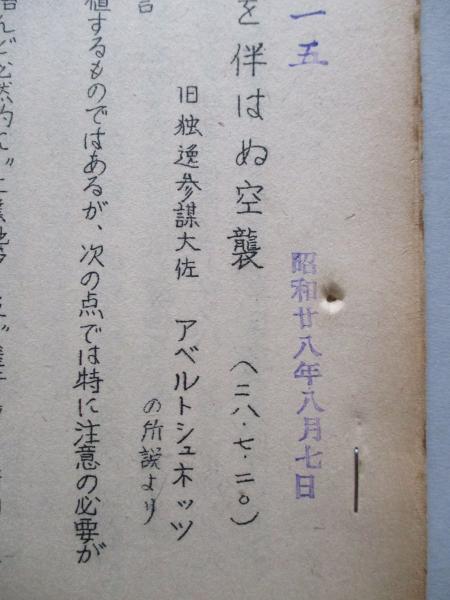 一五
昭和廿八年八月七日
を伴はぬ空襲 (二八・七・二〇)
旧独逸参謀大佐 アベルトシュネッツ
の所説より
言
値するものではあるが、次の点では特に注意の必要が